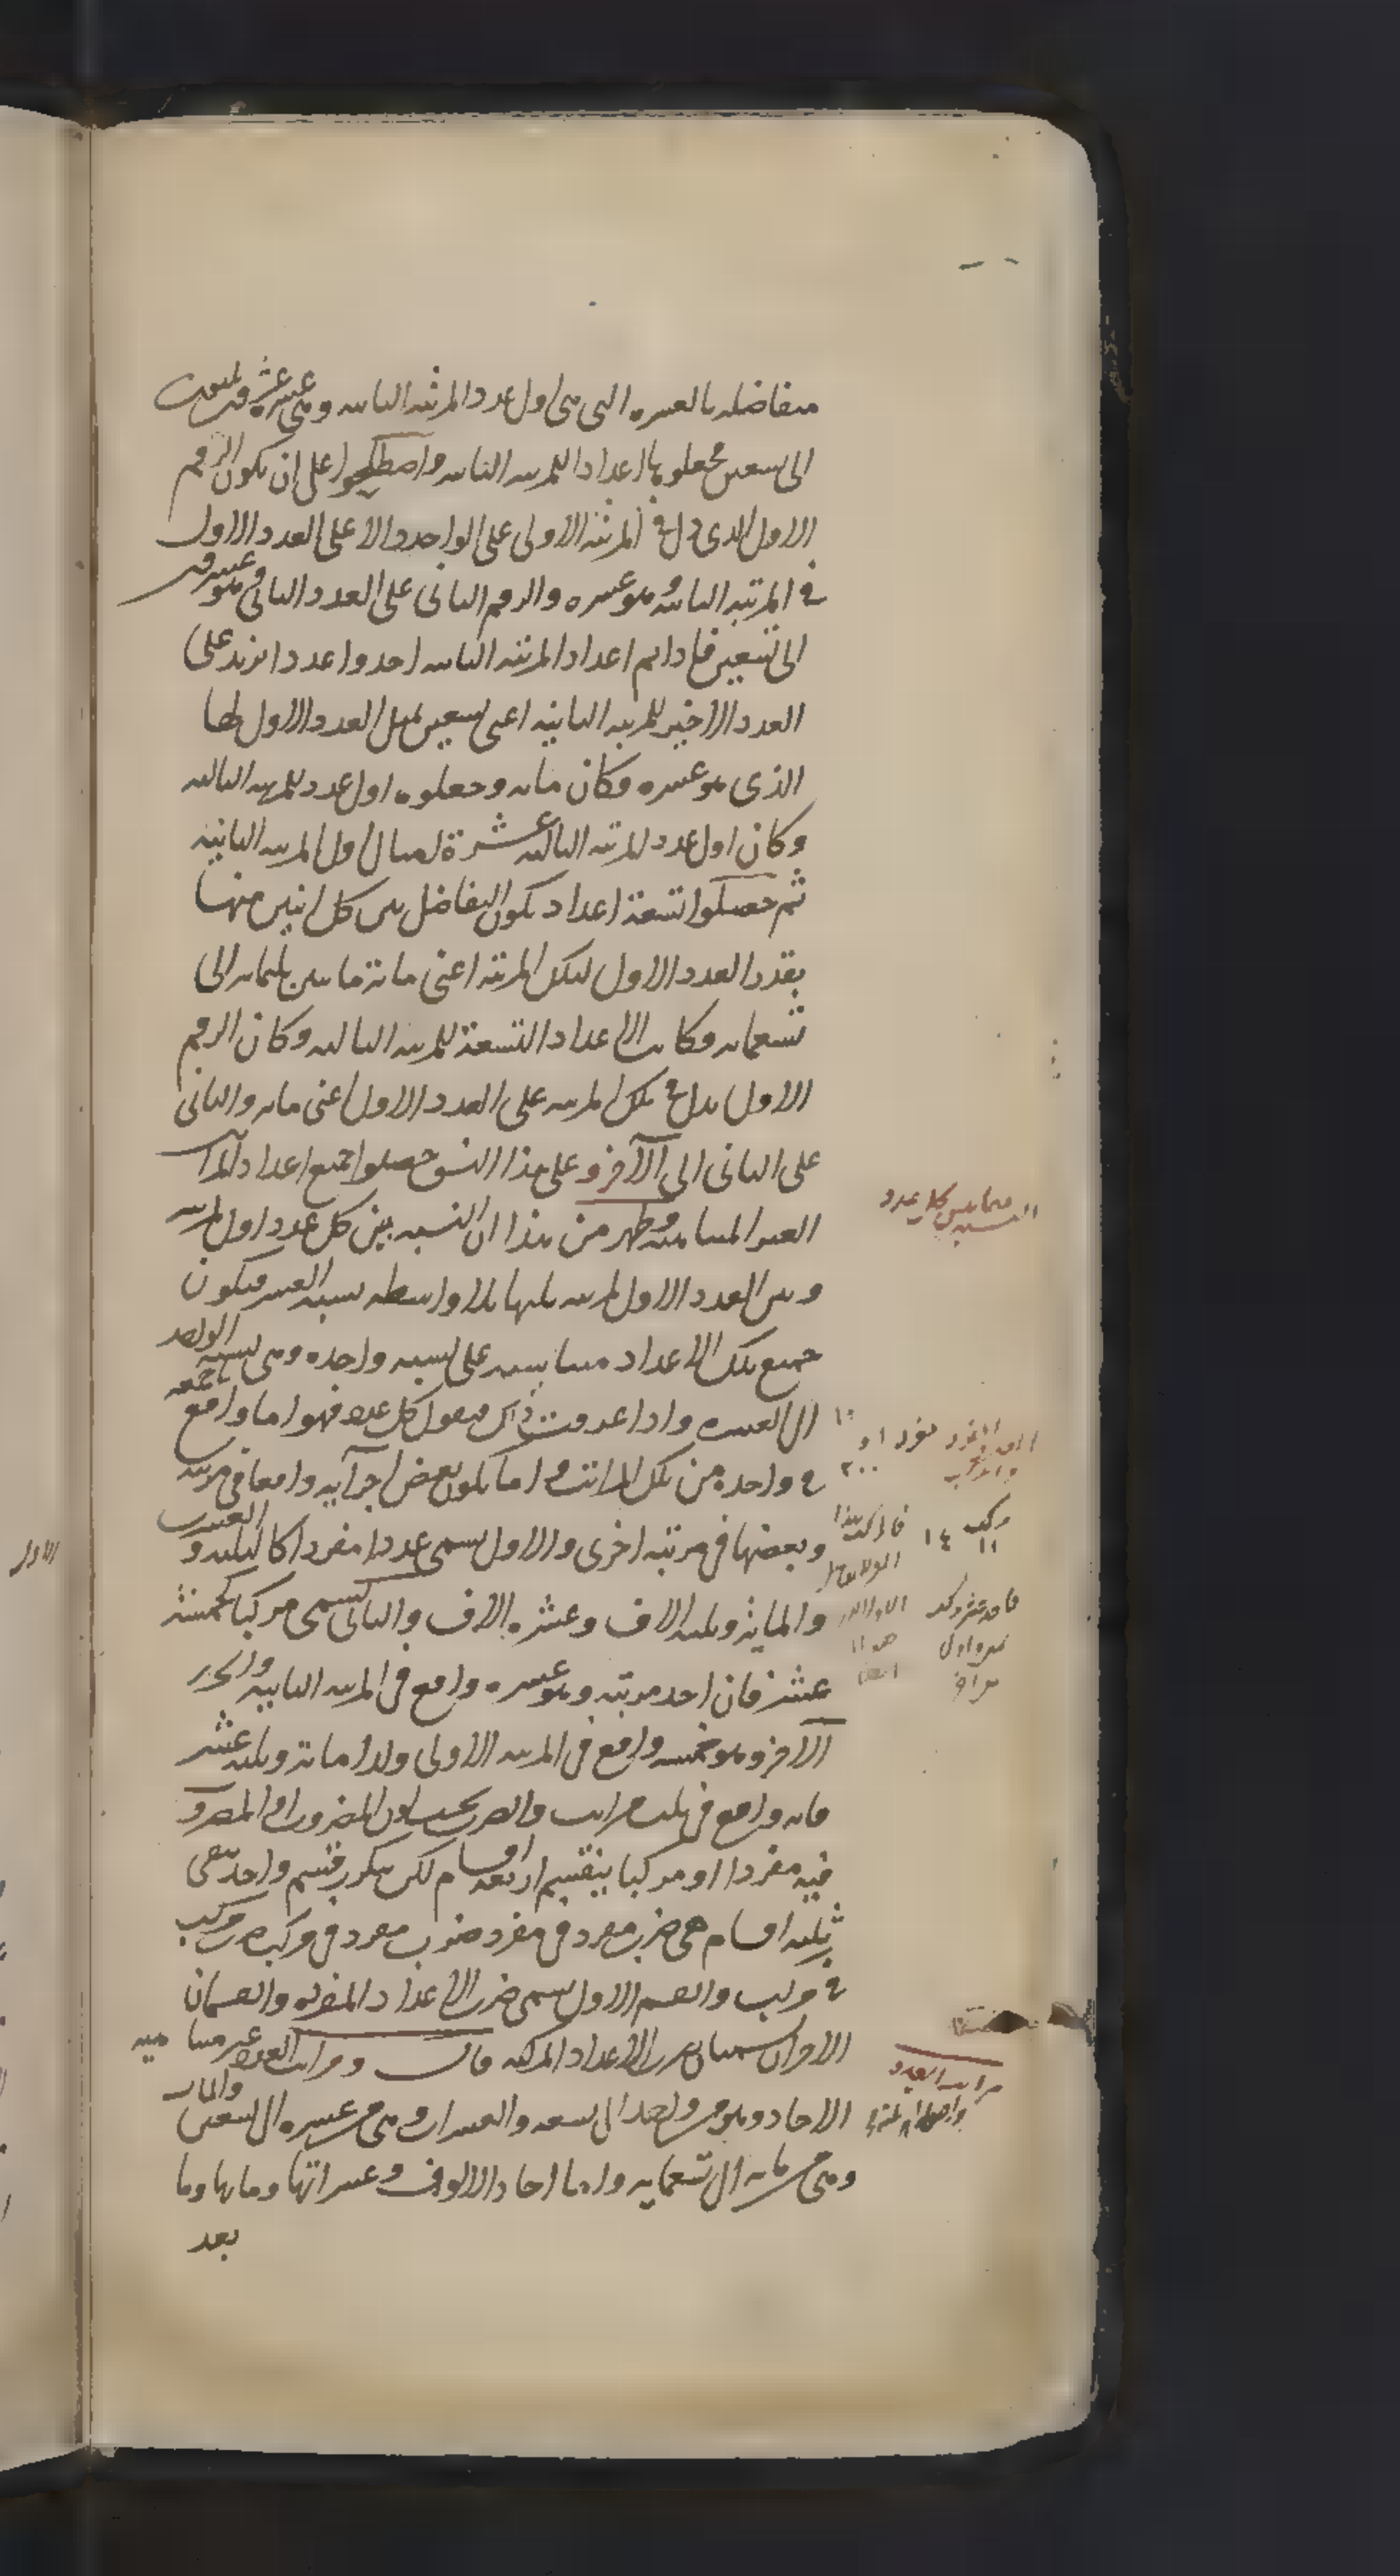 متفاضله بالعشره التى هى اول عدد المرتبه الثانيه وهى عشره عشرون ثلثون
الى تسعين فجعلوها اعداد المرتبه الثانيه واصطلحوا على ان يكون الرقم
الاول الدى دل فى المرتبة الاولى على الواحد دالا على العدد الاول
فى المرتبه الثانيه وهو عشره والرقم الثانى على العدد الثانى وهو عشرون
الى تسعين فلما تم اعداد المرتبه الثانيه اخدوا عددا يزيد على
العدد الاخير للمرتبه الثانيه اعنى تسعين بمثل العدد الاول لها
الذى هو عشره فكان مايه وجعلوه اول عدد للمرتبه الثالثه
وكان اول عدد المرتبه الثالثه عشرة امثال اول المرتبه الثانيه
ثم حصلوا تسعة اعداد يكون التفاضل بين كل اثنين منها
بقدر العدد الاول لتلك المرتبه اعنى مائة مايتين ثلثمايه الى
تسعمايه فكانت الاعداد التسعة للمرتبه الثالثه وكان الرقم
الاول يدل فى تلك المرتبه على العدد الاول اعنى مايه والثانى
على الثانى الى الآخر وعلى هذا النسق حصلوا جميع اعداد المراتب
الغير المتناهيه وظهر من هذا ان النسبه بين كل عدد اول لمرتبه
وبين العدد الاول لمرتبه يليها بلا واسطه نسبه العشر فيكون
جميع تلك الاعداد متناسبه على نسبه واحده وهى نسبة الواحد
الى العشره وادا عرفت ذلك فنقول كل عدد فهو اما واقع باجمعه
فى واحده من تلك المراتب واما يكون بعض اجزآيه واقعا فى مرتبه
وبعضها فى مرتبه اخرى والاول يسمى عددا مفردا كالثلثه والعشرين
والماية وثلثه الاف وعشره الاف والثانى يسمى مركبا كخمسة
عشر فان احد مرتبتيه وهو عشره واقع فى المرتبه الثانيه والجزء
الآخر وهو خمسه واقع فى المرتبه الاولى ولدا ماية وثلثه عشر
فانه واقع فى ثلث مراتب والضرب بحسب كون المضروب او المضروب
فيه مفردا او مركبا ينقسم اربعه اقسام لكن يتكرر قسم واحد يبقى
ثلثه اقسام هى ضرب مفرد فى مفرد ضرب مفرد فى مركب ضرب مركب
فى مركب والقسم الاول يسمى ضرب الاعداد المفرده والقسمان
الاخران يسميان ضرب الاعداد المركبه قال ومراتب العدد غير متناهيه
الاحاد وهو من واحد الى تسعه والعشرات وهى من عشره الى تسعين والمات
وهى من مايه الى تسعمايه واما احاد الالوف وعشراتها ومايها وما
بعد
فيما بين كل عدد
النسبه
مفرد ١ و ١٠
٣٠٠
مركب
١١ ١٤
مراتب العدد
الاول